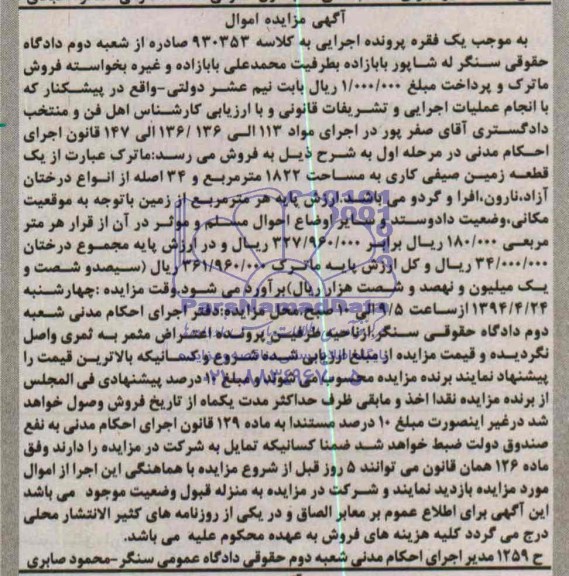 آگهی مزایده اموال
به موجب یک فقره پرونده اجرایی به کلاسه ۹۳۰۳۵۳ صادره از شعبه دوم دادگاه
حقوقی سنگر له شاپور بابازاده بطرفیت محمدعلی بابازاده و غیره بخواسته فروش
ماترک و پرداخت مبلغ ۱/۰۰۰/۰۰۰ ریال بابت نیم عشر دولتی-واقع در پیشکنار که
با انجام عملیات اجرایی و تشریفات قانونی و با ارزیابی کارشناس اهل فن و منتخب
دادگستری آقای صفر پور در اجرای مواد ۱۱۳ الی ۱۳۶ /۱۳۶ الی ۱۴۷ قانون اجرای
احکام مدنی در مرحله اول به شرح ذیل به فروش می رسد:ماترک عبارت از یک
قطعه زمین صیفی کاری به مساحت ۱۸۲۲ مترمربع و ۳۴ اصله از انواع درختان
آزاد،نارون،افرا و گردو می باشد.ارزش پایه هر مترمربع از زمین باتوجه به موقعیت
مکانی،وضعیت دادوستد و سایر اوضاع احوال مسلم و موثر در آن از قرار هر متر
مربعی ۱۸۰/۰۰۰ ریال برابر ۳۲۷/۹۶۰/۰۰۰ ریال و در ارزش پایه مجموع درختان
۳۴/۰۰۰/۰۰۰ ریال و کل ارزش پایه ماترک ۳۶۱/۹۶۰/۰۰۰ ریال (سیصدو شصت و
یک میلیون و نهصد و شصت هزار ریال)برآورد می شود.وقت مزایده :چهارشنبه
۱۳۹۴/۴/۲۴ ازساعت ۹/۵ الی ۱۰ صبح.محل مزایده:دفتر اجرای احکام مدنی شعبه
دوم دادگاه حقوقی سنگر.ازناحیه طرفین پرونده اعتراض مثمر به ثمری واصل
نگردیده و قیمت مزایده از مبلغ ارزیابی شده شروع و کسانیکه بالاترین قیمت را
پیشنهاد نمایند برنده مزایده محسوب می شوند و مبلغ ۱۰ درصد پیشنهادی فی المجلس
از برنده مزایده نقدا اخذ و مابقی ظرف حداکثر مدت یکماه از تاریخ فروش وصول خواهد
شد درغیر اینصورت مبلغ ۱۰ درصد مستندا به ماده ۱۲۹ قانون اجرای احکام مدنی به نفع
صندوق دولت ضبط خواهد شد ضمنا کسانیکه تمایل به شرکت در مزایده را دارند وفق
ماده ۱۲۶ همان قانون می توانند ۵ روز قبل از شروع مزایده با هماهنگی این اجرا از اموال
مورد مزایده بازدید نمایند و شرکت در مزایده به منزله قبول وضعیت موجود می باشد
این آگهی برای اطلاع عموم بر معابر الصاق و در یکی از روزنامه های کثیر الانتشار محلی
درج می گردد کلیه هزینه های فروش به عهده محکوم علیه می باشد.
ح ۱۲۵۹ مدیر اجرای احکام مدنی شعبه دوم حقوقی دادگاه عمومی سنگر-محمود صابری
ParsNamadData